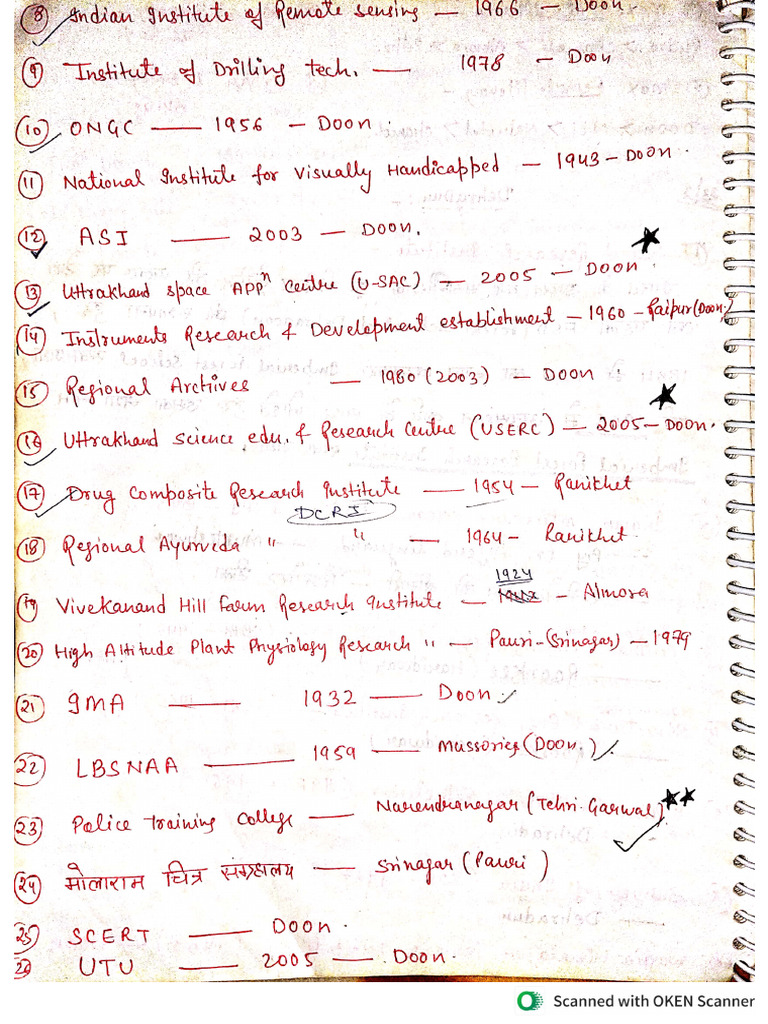 8 Indian Institute of Remote sensing — 1966 — Doon.
9 Institute of Drilling tech. — 1978 — Doon
10 ONGC — 1956 — Doon.
11 National Institute for Visually Handicapped — 1943 — Doon.
12 ASI — 2003 — Doon.
13 Uttrakhand space APPn Centre (U-SAC) — 2005 — Doon
14 Instruments Research & Development establishment — 1960 — Raipur (Doon.)
15 Regional Archives — 1980 (2003) — Doon.
16 Uttrakhand science edu. & Research Centre (USERC) — 2005 — Doon.
17 Drug Composite Research Institute — 1954 — Ranikhet
DCRI
18 Regional Ayurveda " " — 1964 — Ranikhet.
1924
19 Vivekanand Hill farm Research Institute — — Almora
20 High Altitude Plant Physiology Research " — Pauri-(Srinagar) — 1979
21 IMA — 1932 — Doon.
22 LBSNAA — 1959 — Mussories (Doon.)
23 Police training College — Narendranagar (Tehri-Garwal)
24 मोलाराम चित्र संग्रहालय — Srinagar (Pauri)
25 SCERT — Doon.
26 UTU — 2005 — Doon.
Scanned with OKEN Scanner